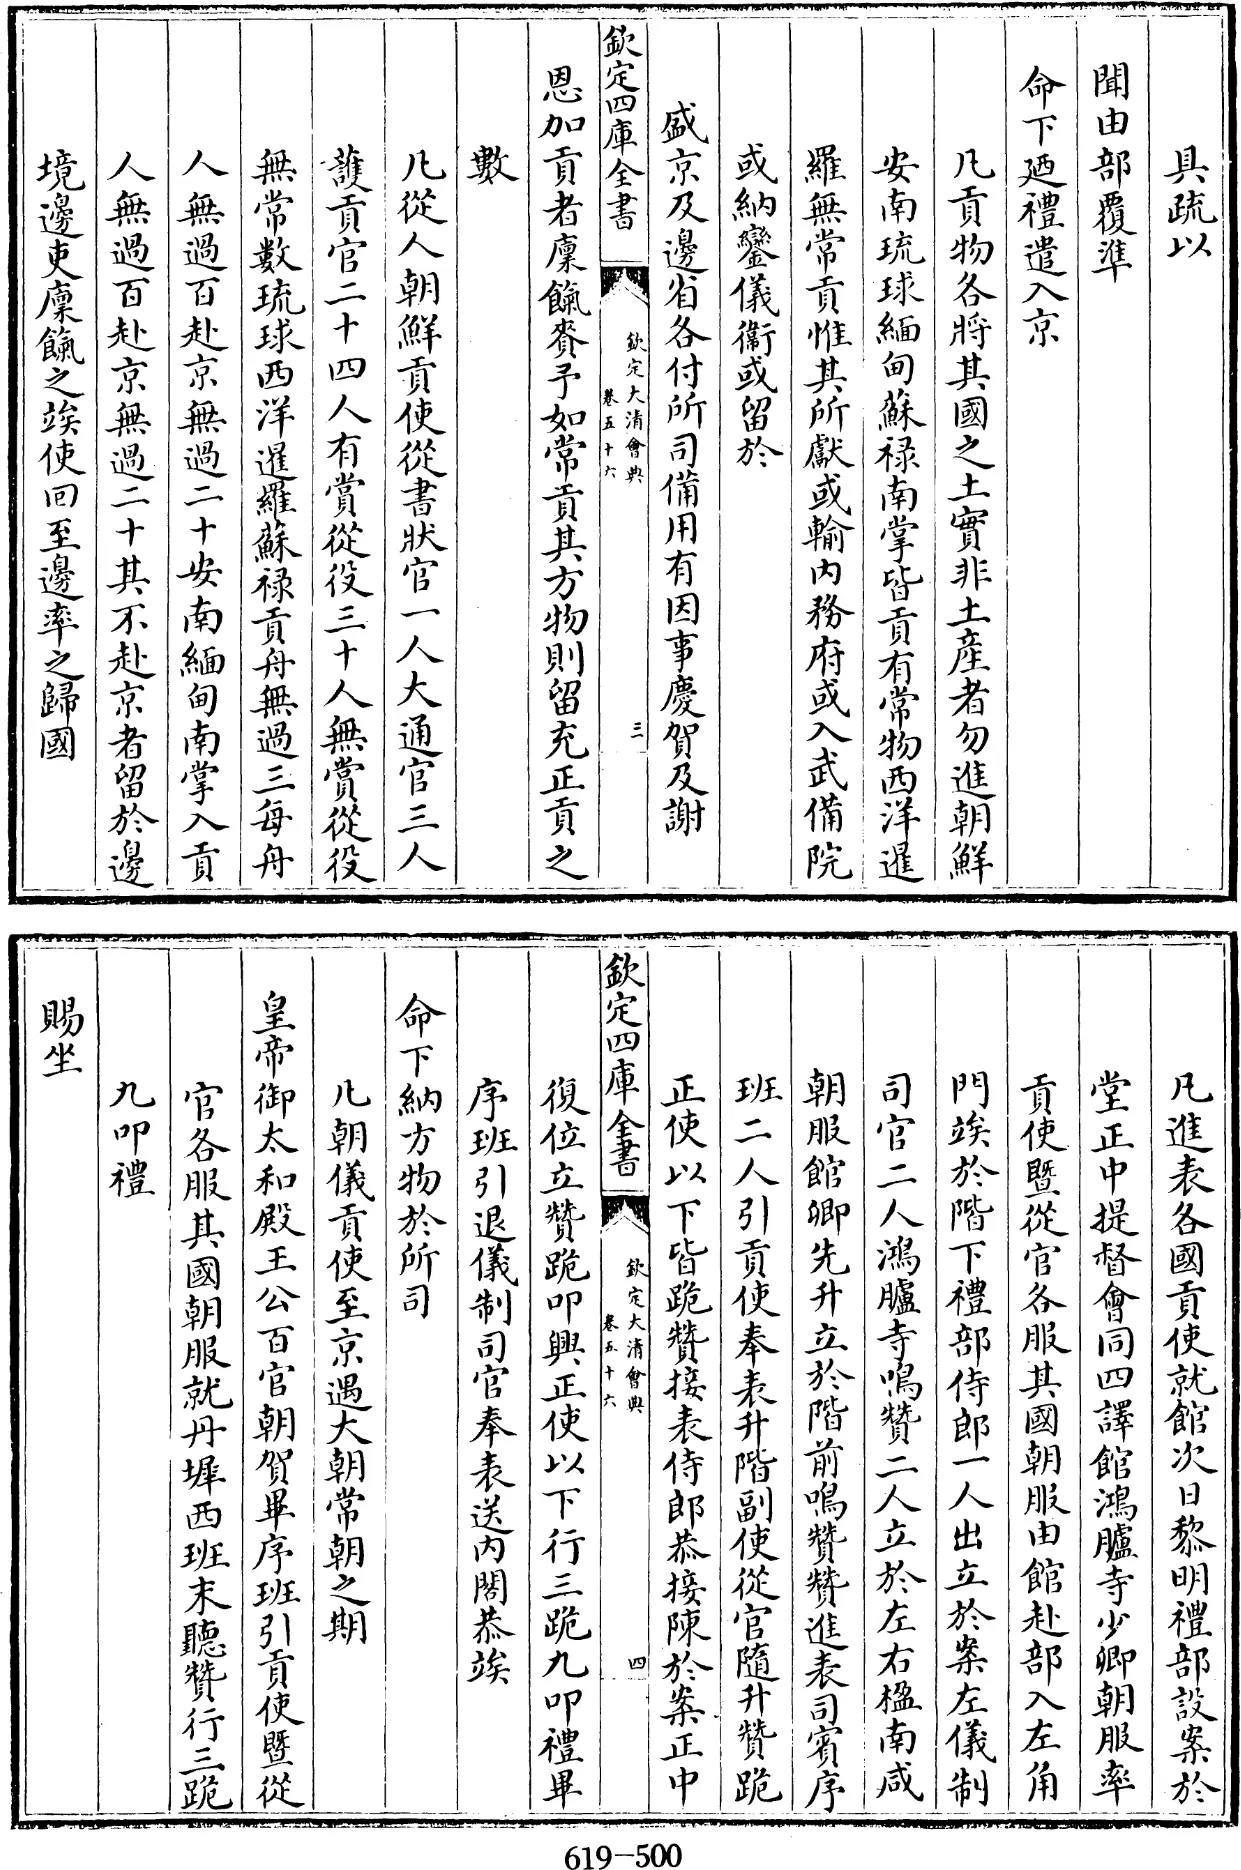 具疏以
聞由部覆準
命下廼禮遣入京
凡貢物各將其國之土實非土産者勿進朝鮮
安南琉球緬甸蘇禄南掌皆貢有常物西洋暹
羅無常貢惟其所獻或輸内務府或入武備院
或納鑾儀衞或留於
盛京及邊省各付所司備用有因事慶賀及謝
欽定四庫全書
欽定大清會典
卷五十六
三
恩加貢者廩餼賚予如常貢其方物則留充正貢之
數
凡從人朝鮮貢使從書狀官一人大通官三人
護貢官二十四人有賞從役三十人無賞從役
無常數琉球西洋暹羅蘇禄貢舟無過三每舟
人無過百赴京無過二十安南緬甸南掌入貢
人無過百赴京無過二十其不赴京者留於邊
境邊吏廩餼之竢使回至邊率之歸國
凡進表各國貢使就館次日黎明禮部設案於
堂正中提督會同四譯館鴻臚寺少卿朝服率
貢使暨從官各服其國朝服由館赴部入左角
門竢於階下禮部侍郎一人出立於案左儀制
司官二人鴻臚寺鳴贊二人立於左右楹南咸
朝服館卿先升立於階前鳴贊贊進表司賓序
班二人引貢使奉表升階副使從官隨升贊跪
正使以下皆跪贊接表侍郎恭接陳於案正中
欽定四庫全書
欽定大清會典
卷五十六
四
復位立贊跪叩興正使以下行三跪九叩禮畢
序班引退儀制司官奉表送内閣恭竢
命下納方物於所司
凡朝儀貢使至京遇大朝常朝之期
皇帝御太和殿王公百官朝賀畢序班引貢使暨從
官各服其國朝服就丹墀西班末聽贊行三跪
九叩禮
賜坐
619-500